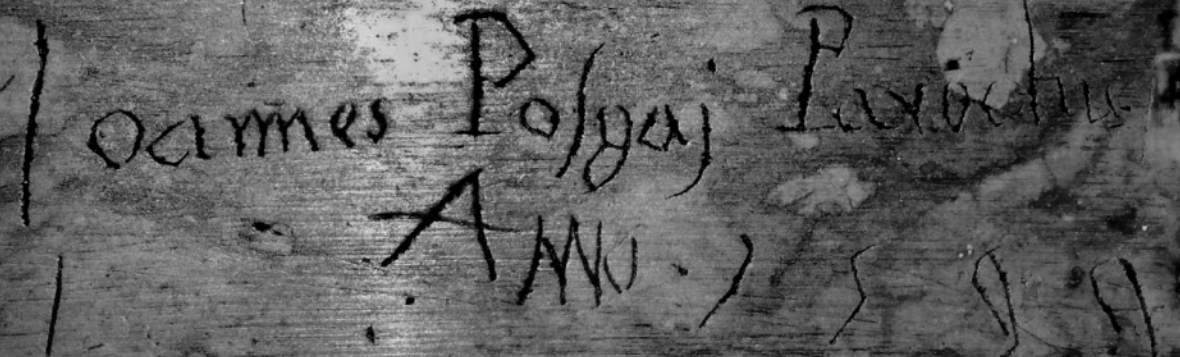 Ioannes Polgaj Parochus
Anno . 1589